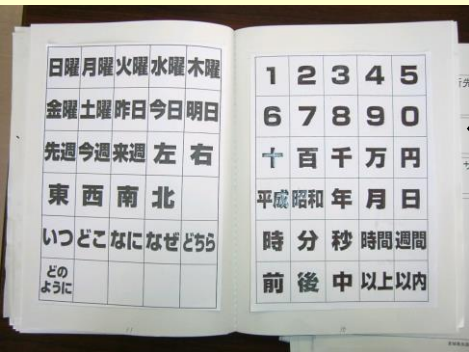 日曜 月曜 火曜 水曜 木曜
金曜 土曜 昨日 今日 明日
先週 今週 来週 左 右
東 西 南 北
いつ どこ なに なぜ どちら
どの
ように
1 2 3 4 5
6 7 8 9 0
十 百 千 万 円
平成 昭和 年 月 日
時 分 秒 時間 週間
前 後 中 以上 以内